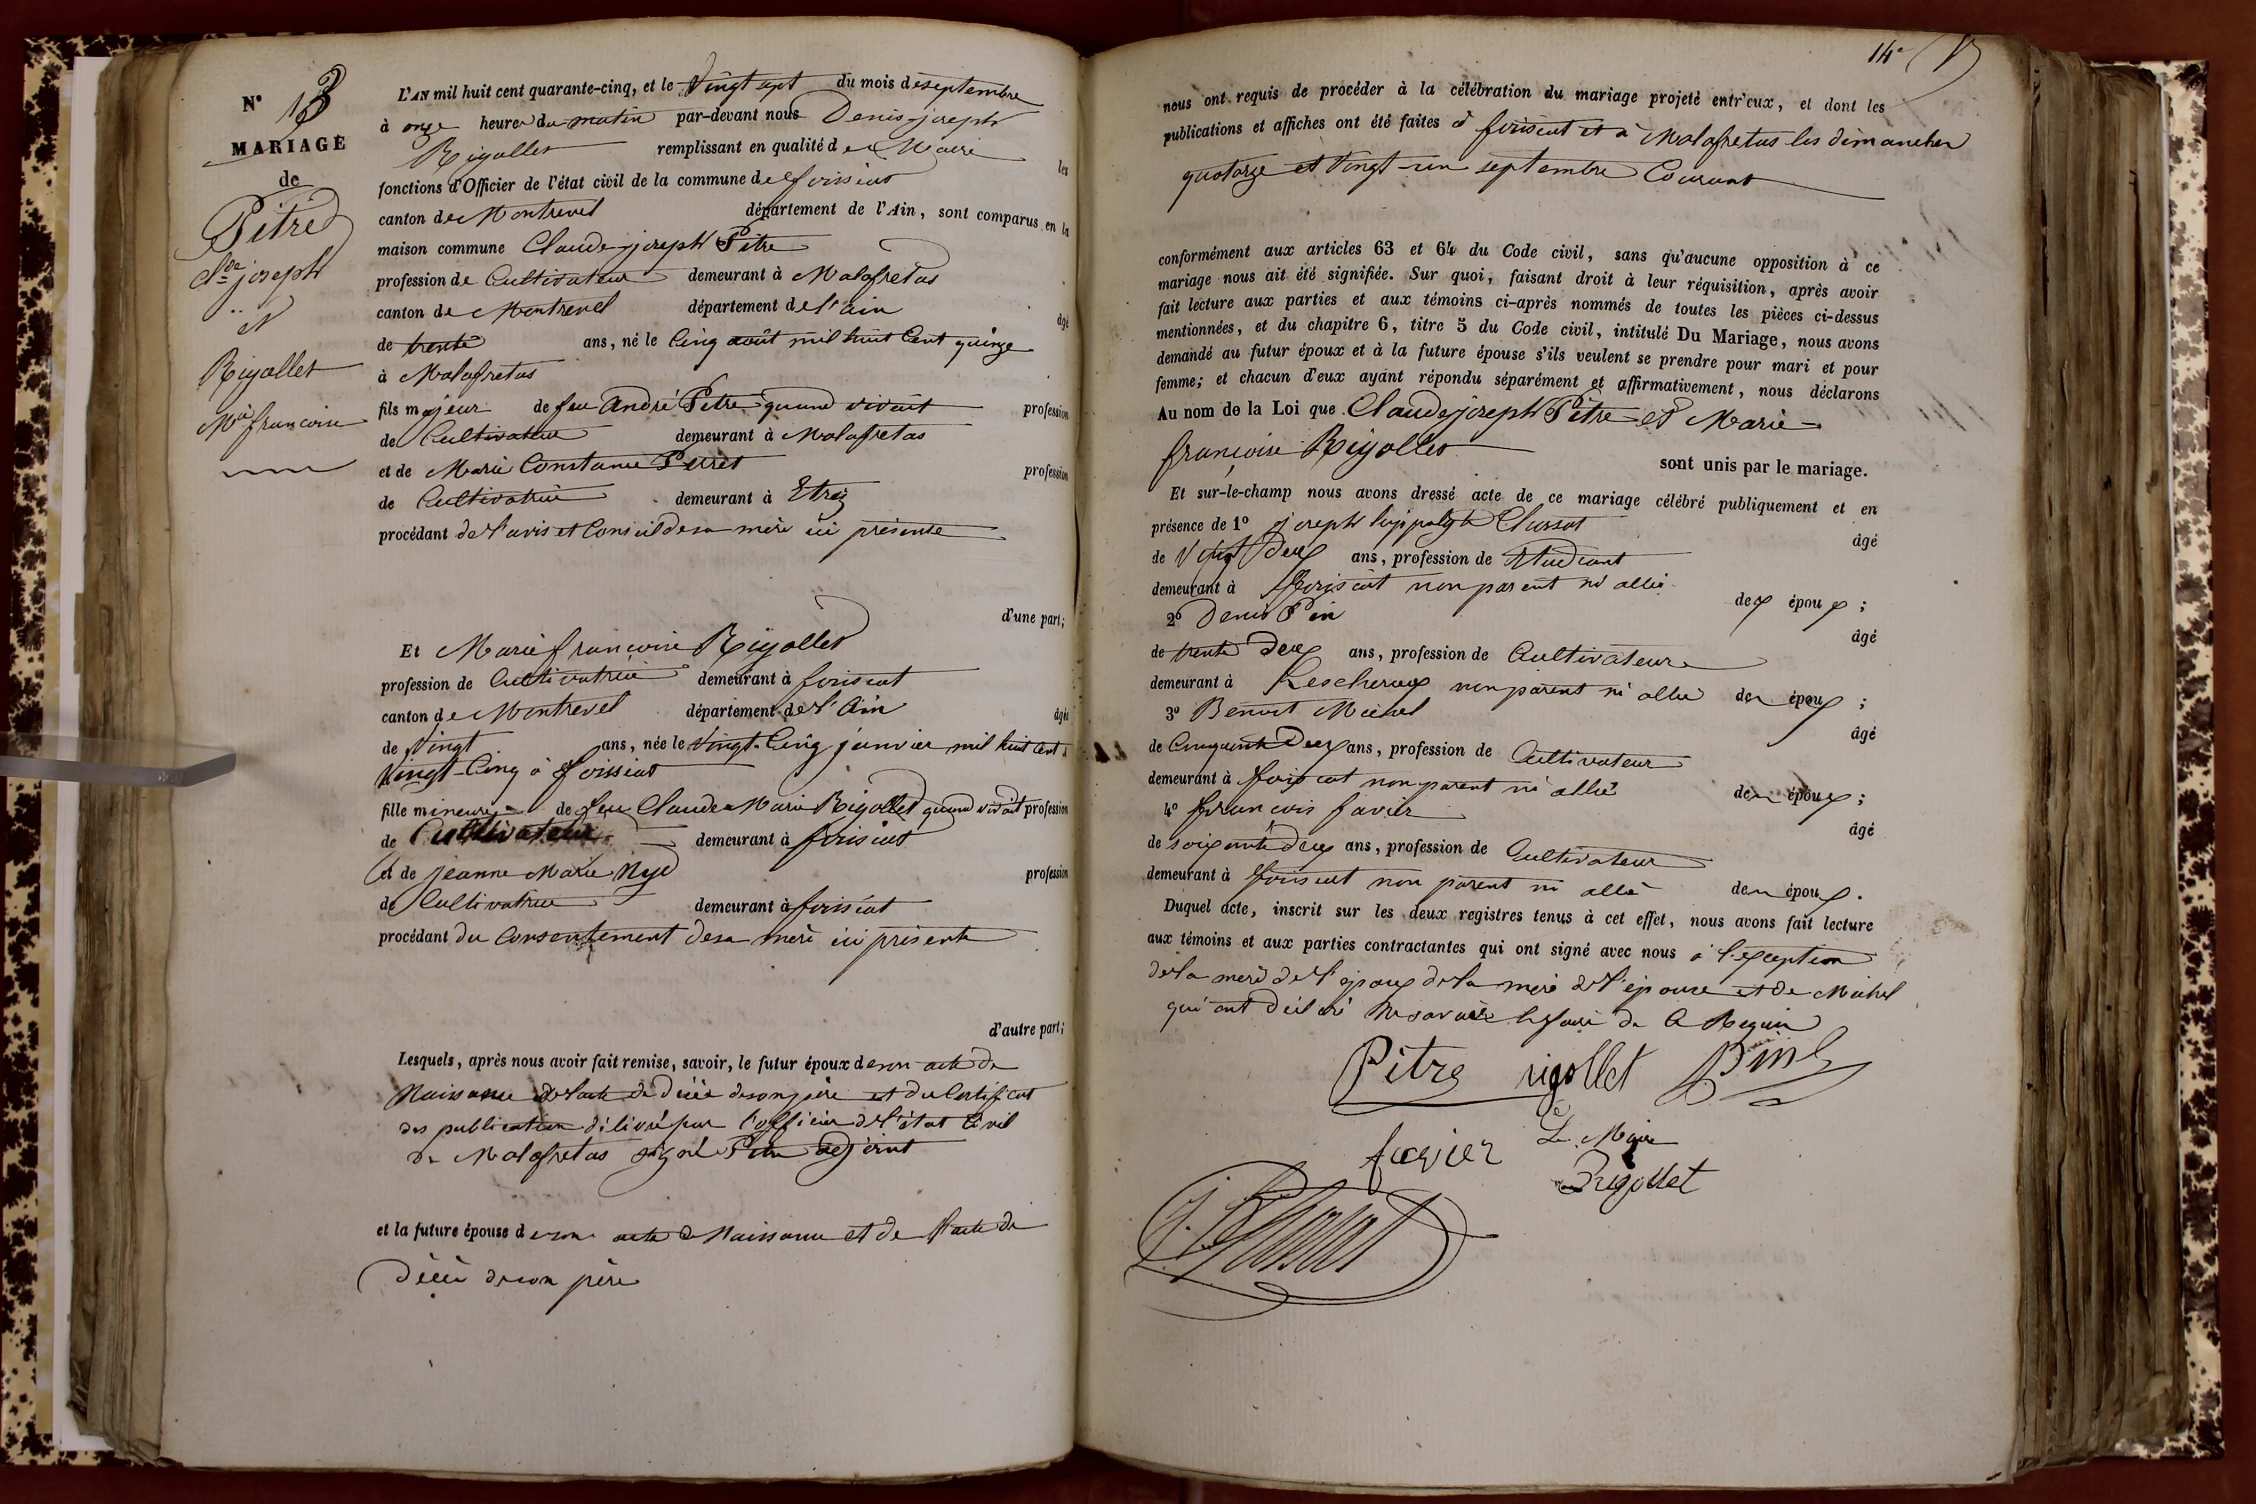 N° 13
MARIAGE
de
Pitre
Cl.de joseph
et
Rigollet
M.ie francoise
L'AN mil huit cent quarante-cinq, et le Vingt sept du mois de septembre
à onze heures du matin par-devant nous Denis joseph
Rigollet remplissant en qualité de Maire les
fonctions d'Officier de l'état civil de la commune de foissiat
canton de Montrevel département de l'Ain, sont comparus en la
maison commune Claude joseph Pitre
profession de Cultivateur demeurant à Malafretas
canton de Montrevel département de l'ain âgé
de trente ans, né le Cinq août mil huit Cent quinze
à Malafretas
fils majeur de feu André Pitre quand vivait profession
de Cultivateur demeurant à Malafretas
et de Marie Constance Perret profession
de Cultivatrice demeurant à Etrez
procédant de l'avis et Conseil de sa mère ici présente
d'une part;
Et Marie francoise Rigollet
profession de Cultivatrice demeurant à foissiat
canton de Montrevel département de l'Ain âgée
de Vingt ans, née le Vingt-Cinq janvier mil huit Cent
Vingt-Cinq à foissiat
fille mineure de feu Claude Marie Rigollet quand vivait profession
de Cultivateur demeurant à foissiat
et de jeanne Marie Nyd
profession
de Cultivatrice demeurant à foissiat
procédant du Consentement de sa mère ici présente
d'autre part;
Lesquels, après nous avoir fait remise, savoir, le futur époux de son acte de
Naissance de l'acte de décès de son père et du Certificat
des publication délivré par l'officier de l'état Civil
de Malafretas signé Pitre adjoint
et la future épouse de son acte de Naissance et de l'acte de
décès de son père
14e
nous ont requis de procéder à la célébration du mariage projeté entr'eux, et dont les
publications et affiches ont été faites à foissiat et à Malafretas les dimanches
quatorze et Vingt-un septembre Courant
conformément aux articles 63 et 64 du Code civil, sans qu'aucune opposition à ce
mariage nous ait été signifiée. Sur quoi, faisant droit à leur réquisition, après avoir
fait lecture aux parties et aux témoins ci-après nommés de toutes les pièces ci-dessus
mentionnées, et du chapitre 6, titre 5 du Code civil, intitulé Du Mariage, nous avons
demandé au futur époux et à la future épouse s'ils veulent se prendre pour mari et pour
femme; et chacun d'eux ayant répondu séparément et affirmativement, nous déclarons
Au nom de la Loi que Claude joseph Pitre et Marie
francoise Rigollet
sont unis par le mariage.
Et sur-le-champ nous avons dressé acte de ce mariage célébré publiquement et en
présence de 1° joseph hyppolyte Chossat âgé
de Vingt Deux ans, profession de Etudiant
demeurant à foissiat non parent ni allié des époux;
2° Denis Pin âgé
de trente Deux ans, profession de Cultivateur
demeurant à Lescheroux non parent ni allié des époux;
3° Benoit Michel âgé
de Cinquante Deux ans, profession de Cultivateur
demeurant à foissiat non parent ni allié des époux;
4° francois favier âgé
de soixante deux ans, profession de Cultivateur
demeurant à foissiat non parent ni allié des époux.
Duquel acte, inscrit sur les deux registres tenus à cet effet, nous avons fait lecture
aux témoins et aux parties contractantes qui ont signé avec nous à l'exception
de la mère de l'époux de la mère de l'épouse et de Michel
qui ont déclaré ne savoir le faire de Ce Requis
Pitre rigollet Pin
favier Le Maire
Rigollet